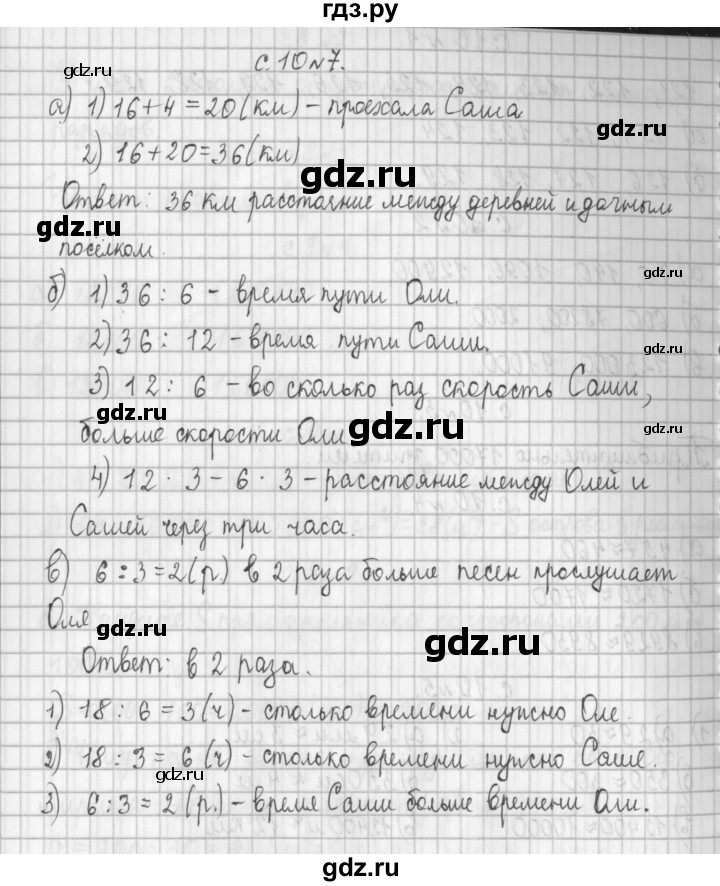 гдз.ру
с. 10 №7.
gdz.ru
а) 1) 16+4=20(км) – проехала Саша
gdz.ru
2) 16+20=36(км)
gdz.ru
Ответ: 36 км расстояние между деревней и дачным
gdz.ru
посёлком.
gdz.ru
б) 1) 36 : 6 – время пути Оли.
2) 36 : 12 – время пути Саши.
gdz.ru
3) 12 : 6 – во сколько раз скорость Саши,
gdz.ru
больше скорости Оли
gdz.ru
4) 12 · 3 – 6 · 3 – расстояние между Олей и
gdz.ru
Сашей через три часа.
gdz.ru
в) 6 : 3 = 2(р.) в 2 раза больше песен прослушает
Оля
gdz.ru
gdz.ru
Ответ: в 2 раза.
1) 18 : 6 = 3(ч) – столько времени нужно Оле.
gdz.ru
2) 18 : 3 = 6(ч) – столько времени нужно Саше.
gdz.ru
3) 6 : 3 = 2(р.) – время Саши больше времени Оли.
gdz.ru
gdz.ru
gdz.ru